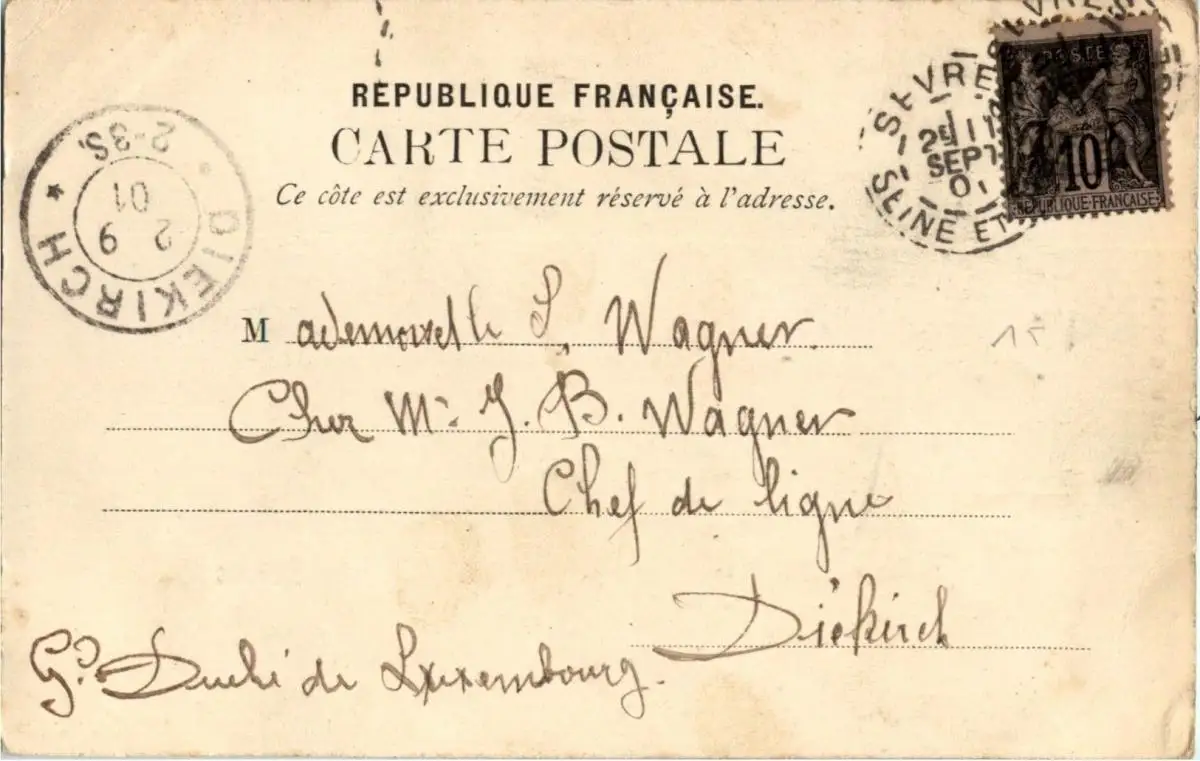 RÉPUBLIQUE FRANÇAISE.
CARTE POSTALE
Ce côte est exclusivement réservé à l'adresse.
SEVRES
SEPT
SEINE ET
POSTES
10
REPUBLIQUE FRANÇAISE
DIEKIRCH
2 9
01
2-3S.
Mademoiselle S. Wagner.
Chez Mr. J. B. Wagner
Chef de ligne
Diékirch
Gd. Duché de Luxembourg.
15